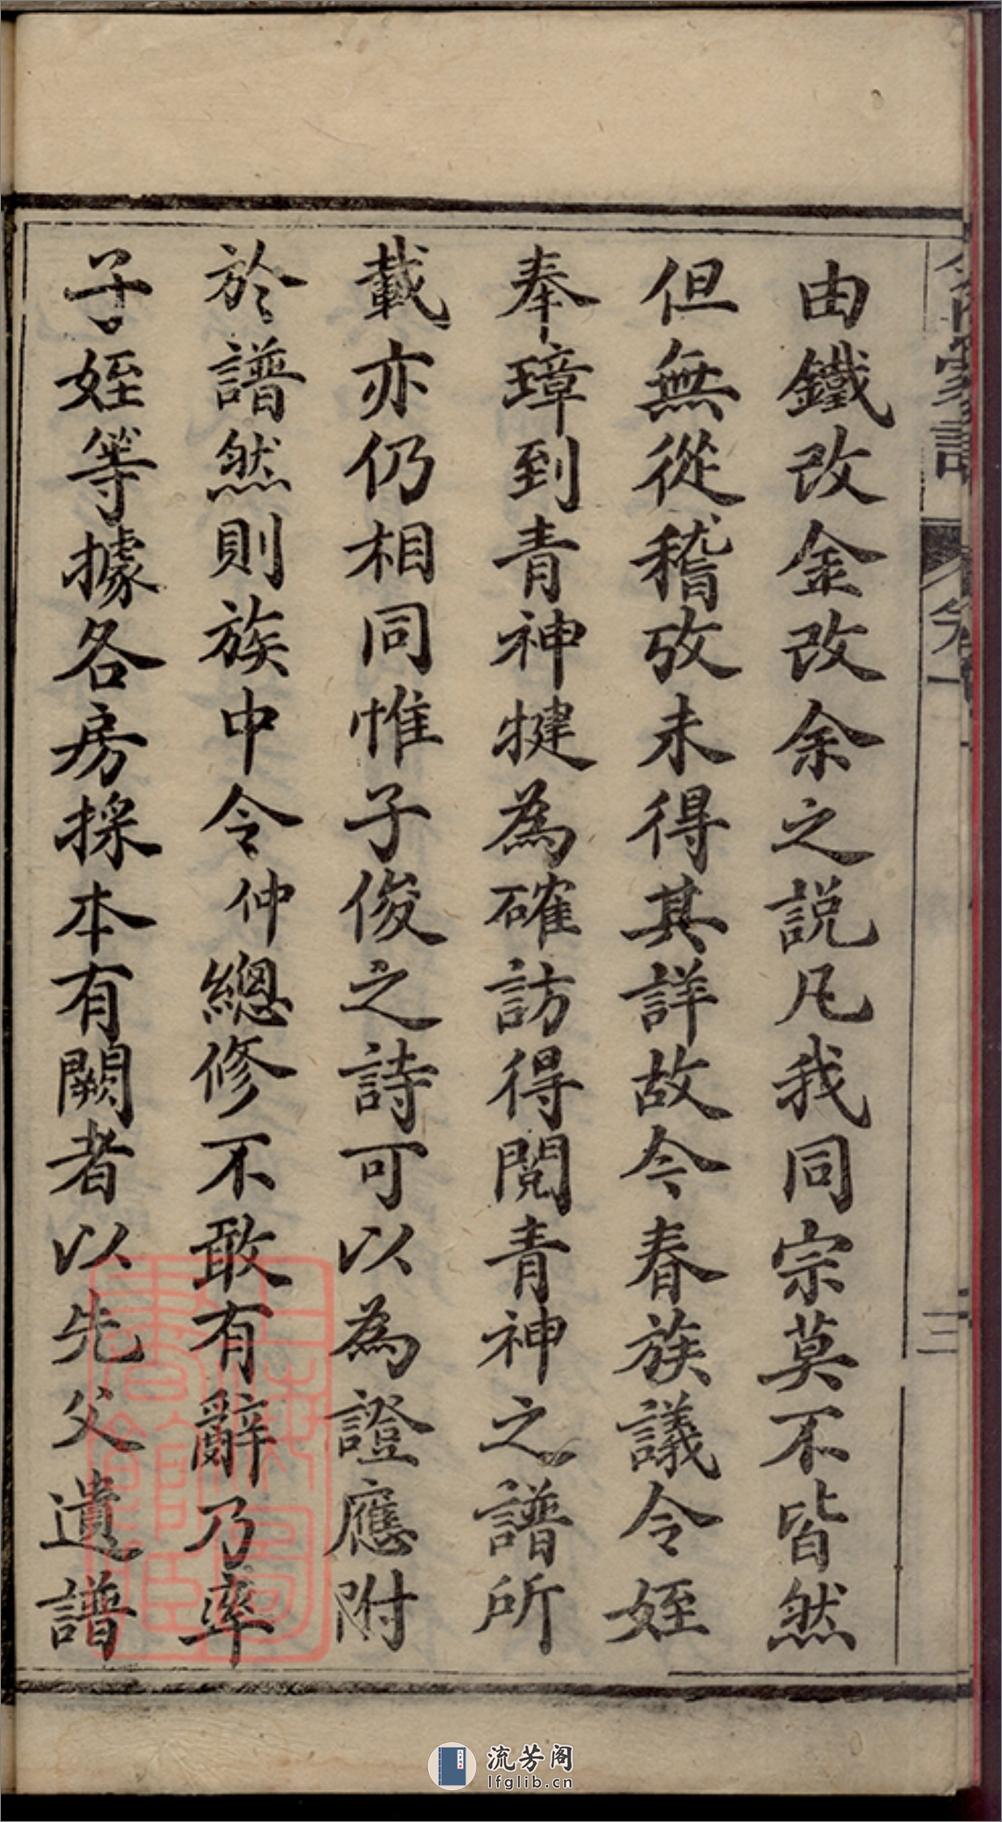 由鐵改金改余之説凡我同宗莫不皆然
但無從稽攷未得其詳故今春族議令姪
奉璋到青神犍為確訪得閱青神之譜所
載亦仍相同惟子俊之詩可以為證應附
於譜然則族中令仲總修不敢有辭乃率
子姪等據各房採本有闕者以先父遺譜
三
流芳阁
lfglib.cn